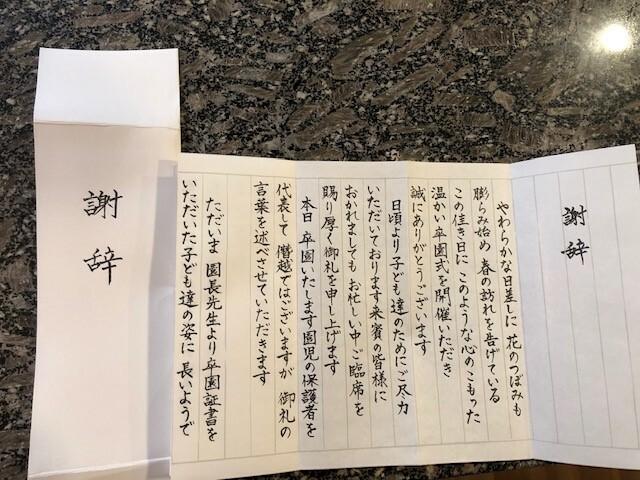 謝辞
謝辞
やわらかな日差しに 花のつぼみも
膨らみ始め 春の訪れを告げている
この佳き日に このような心のこもった
温かい卒園式を開催いただき
誠にありがとうございます
日頃より子ども達のためにご尽力
いただいております来賓の皆様に
おかれましても お忙しい中ご臨席を
賜り厚く御礼を申し上げます
本日 卒園いたします園児の保護者を
代表して 僭越ではございますが 御礼の
言葉を述べさせていただきます
ただいま 園長先生より卒園証書を
いただいた子ども達の姿に 長いようで